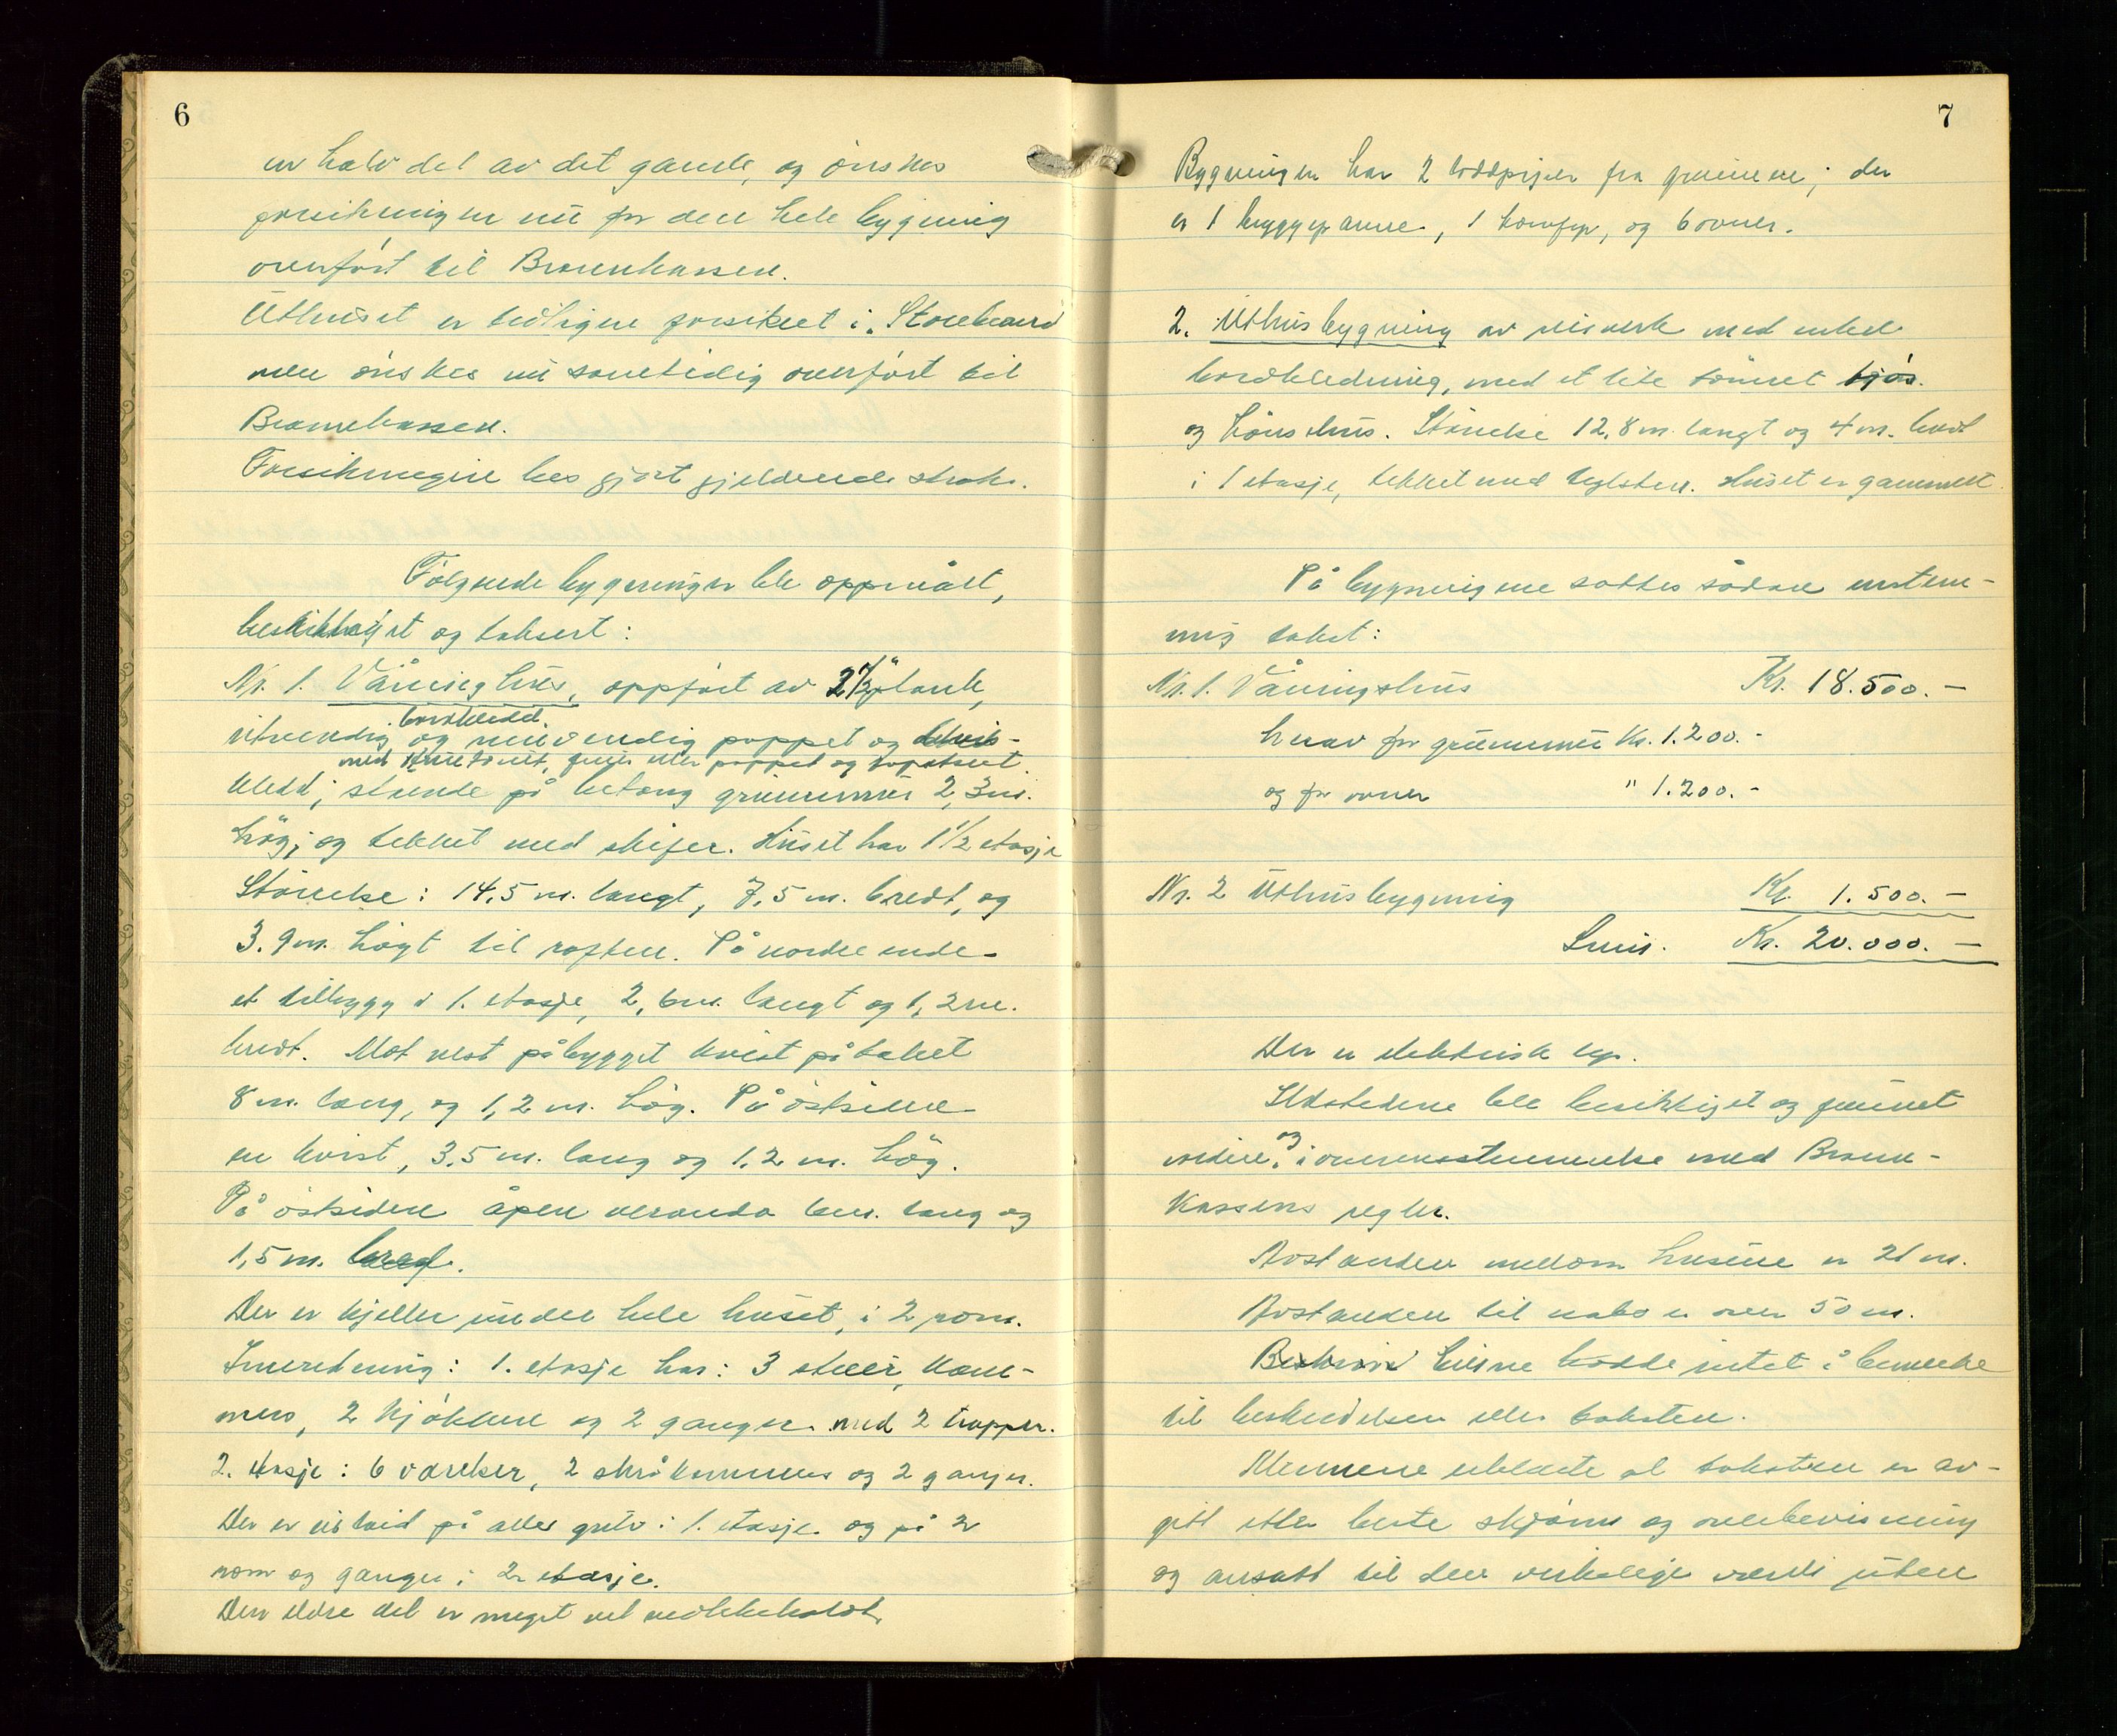 6
en halv del av det gamle, og ønskes
forsikringen nu for den hele bygning
overført til Brannkassen.
Uthuset er tidligere forsikret i "Storebrand
men ønskes nu samtidig overført til
Brannkassen.
Forsikringene bes gjort gjeldende straks.
Følgende bygninger ble oppmålt,
besiktiget og taksert:
Nr. 1. Våningshus, oppført av 2½" plank,
bordkledd.
utvendig og innvendig pappet og
med
kledd; stående på betong grunnmur 2,3 m.
høg; og tekket med skifer. Huset har 1½ etasje
Størrelse: 14,5 m. langt, 7,5 m. bredt, og
3.9 m. høgt til raften. På nordre ende
et tilbygg i 1. etasje, 2,6 m. langt og 1,2 m.
bredt. Mot vest påbygget kvist på taket
8 m. lang, og 1,2 m. høg. På østsiden
en kvist, 3.5 m. lang og 1.2 m. høg.
På østsiden åpen veranda 6 m. lang og
1,5 m. bred.
Der er kjeller under hele huset, i 2 rom.
Innredning: 1. etasje har: 3 stuer, kam-
mers, 2 kjøkken og 2 ganger med 2 trapper.
2. etasje: 6 værelser, 2 skråkammers og 2 ganger.
Der er på alle gulv i 1. etasje og på 2
rom og ganger i 2. etasje.
Den eldre del er meget vel vedlikeholdt.
7
Bygningen har 2 loddpiper fra grunnen; der
er 1 bryggepanne, 1 komfyr, og 6 ovner.
2. Uthusbygning av reisverk med enkel
bordkledning, med et lite tømret fjøs
og hønsehus. Størrelse 12,8 m. langt og 4 m. bredt
i 1 etasje, tekket med teglsten. Huset er gammelt
På bygningene sattes sådan enstem-
mig takst:
Nr. 1. Våningshus Kr. 18.500.-
herav for grunnmur Kr. 1.200.-
og for ovner " 1.200.-
Nr. 2 Uthusbygning Kr. 1.500.-
Sum. Kr. 20.000.-
Der er elektrisk lys.
Ildstedene ble besiktiget og funnet
og
i orden. i overensstemmelse med Brann-
kassens regler.
Avstanden mellom husene er 21 m.
Avstanden til nabo er over 50 m.
hadde intet å bemerke
til beskrivelsen eller taksten.
Mennene erklærte at taksten er av-
gitt etter beste skjønn og overbevisning
og ansatt til den virkelige verdi uten